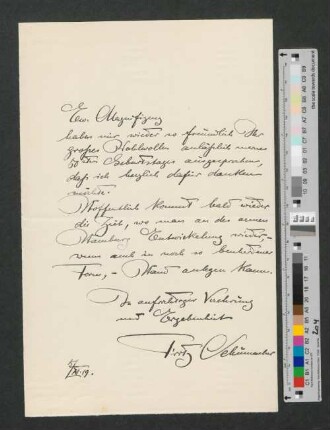 Ew. Magnifizenz
haben mir wieder so freundlich Ihr
großes Wohlwollen anläßlich meines
50ten Geburtstages ausgesprochen,
daß ich herzlich dafür danken
möchte.
Hoffentlich kommt bald wieder
die Zeit, wo man an des armen
Hamburg Entwickelung wieder, -
wenn auch in noch so bescheidener
Form, - Hand anlegen kann.
In aufrichtiger Verehrung
und Ergebenheit
Fritz Schumacher
XI.19.